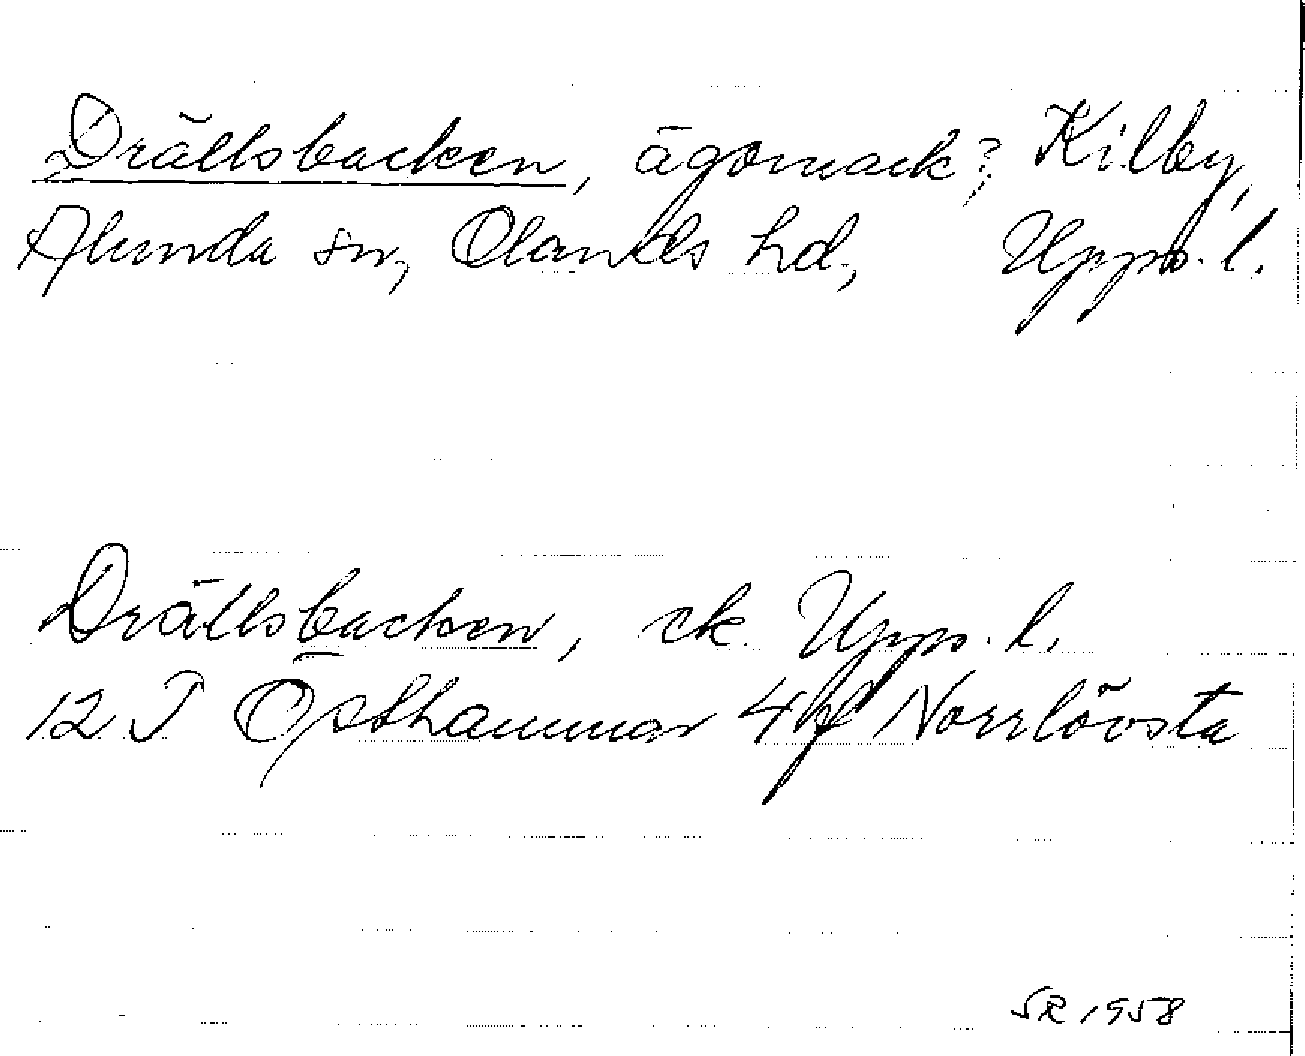 Drällsbacken, ägomark? Kilby,
Alunda sn, Olands hd, Upps. l.
Drällsbacken, ek. Upps. l.
12 I Östhammar 4 hf Norrlövsta
SR 1958